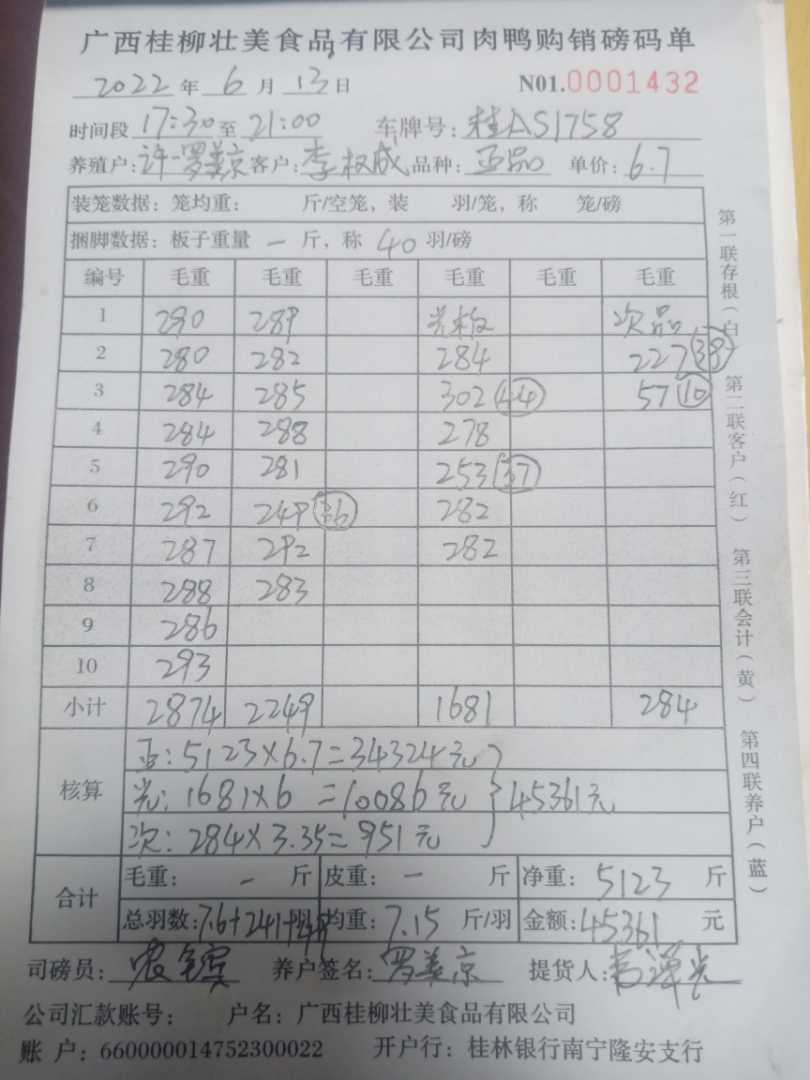 广西桂柳壮美食品有限公司肉鸭购销磅码单
2022 年 6 月 13 日 N01.0001432
时间段 17:30 至 21:00 车牌号: 桂AS1758
养殖户: 许一罗美京 客户: 李权威 品种: 正品 单价: 6.7
装笼数据: 笼均重: 斤/空笼, 装 羽/笼, 称 笼/磅
捆脚数据: 板子重量 一 斤, 称 40 羽/磅
编号 毛重 毛重 毛重 毛重 毛重 毛重
1 290 289 光板 次品
2 280 282 284 227 (38)
3 284 285 302 (44) 57 (10)
4 284 288 278
5 290 281 253 (37)
6 292 249 (36) 282
7 287 292 282
8 288 283
9 286
10 293
小计 2874 2249 1681 284
核算
正: 5123×6.7=34324元
光: 1681×6 =10086元 } 45361元
次: 284×3.35=951元
合计
毛重: - 斤 皮重: - 斤 净重: 5123 斤
总羽数: 716+241+48 均重: 7.15 斤/羽 金额: 45361 元
司磅员: 养户签名: 罗美京 提货人:
公司汇款账号: 户名: 广西桂柳壮美食品有限公司
账 户: 660000014752300022 开户行: 桂林银行南宁隆安支行
第一联存根(白) 第二联客户(红) 第三联会计(黄) 第四联养户(蓝)